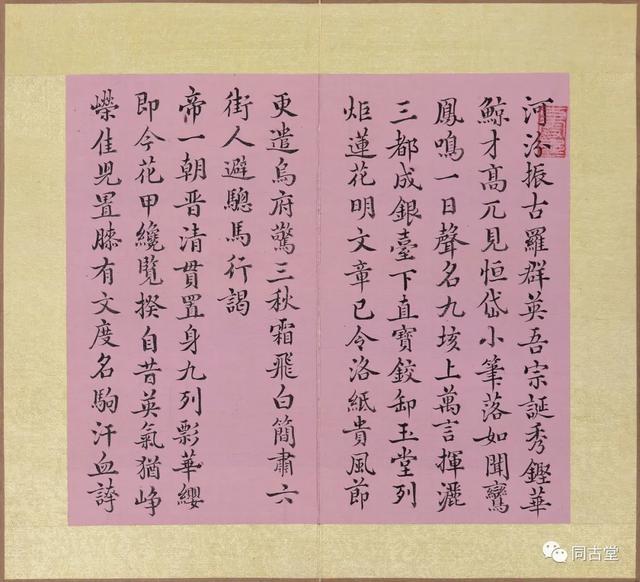 河汾振古羅群英吾宗誕秀鏗華
鯨才高兀見恒岱小筆落如聞鸞
鳳鳴一日聲名九垓上萬言揮灑
三都成銀臺下直寶鉸卸玉堂列
炬蓮花明文章已令洛紙貴風節
更遣烏府驚三秋霜飛白簡肅六
街人避驄馬行謁
帝一朝晉清貫置身九列影華纓
即今花甲纔覽揆自昔英氣猶崢
嶸佳兒置膝有文度名駒汗血誇
同古堂